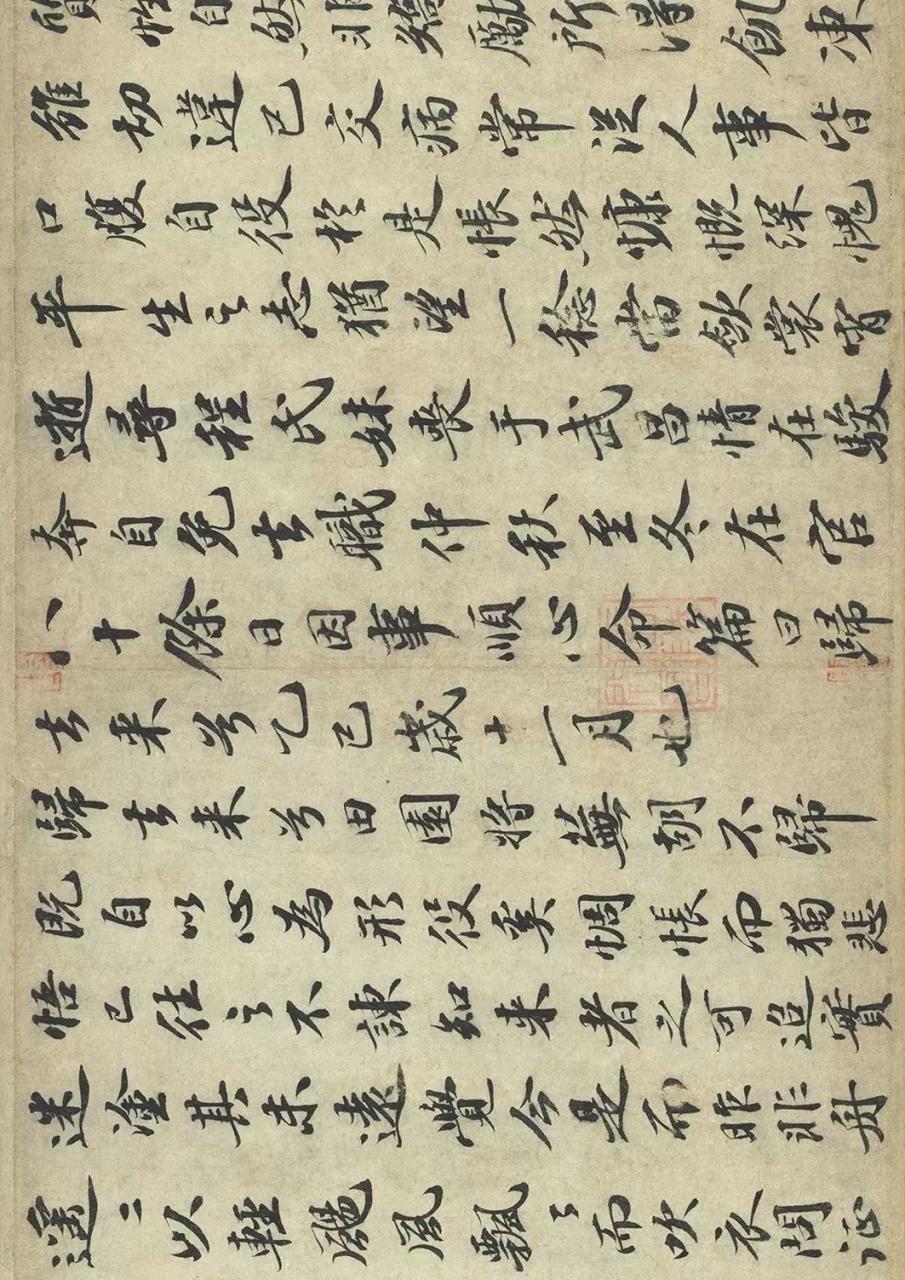 質性自然非矯勵所得飢凍
雖切違己交病常從人事皆
口腹自役於是悵然慷慨深愧
平生之志猶望一稔當斂裳宵
逝尋程氏妹喪于武昌情在駿
奔自免去職仲秋至冬在官
八十餘日因事順心命篇曰歸
去来兮乙巳歲十一月也
歸去来兮田園將蕪胡不歸
既自以心為形役奚惆悵而獨悲
悟已往之不諫知来者之可追實
迷塗其未遠覺今是而昨非舟
遥〻以輕颺風飄〻而吹衣問征